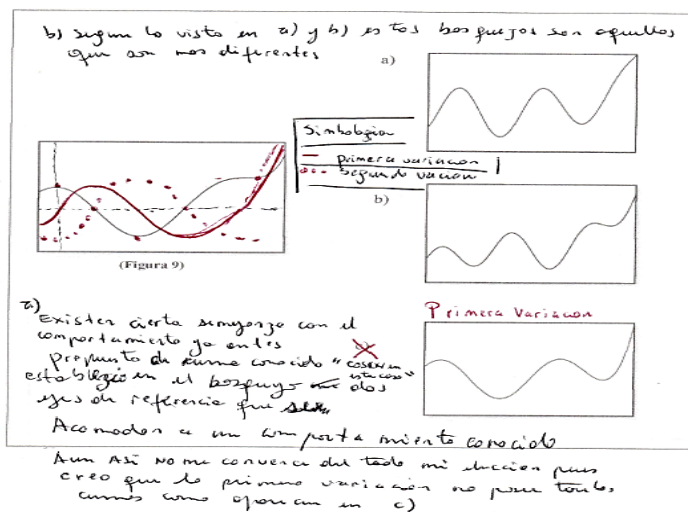 b) segun lo visto en a) y b) estos bosquejos son aquellos
que son mas diferentes
a)
Simbologia
primera variacion
segunda variacion
b)
(Figura 9)
Primera Variacion
a)
Existen cierta semejanza con el
comportamiento ya antes
propuesto de curva conocido "coseno en este caso"
establezco en el bosquejo dos
ejes de referencia que
Acomodan a un comportamiento conocido
Aun Asi No me convence del todo mi eleccion pues
creo que la primera variacion no posee tantas
curvas como aparecen en c)